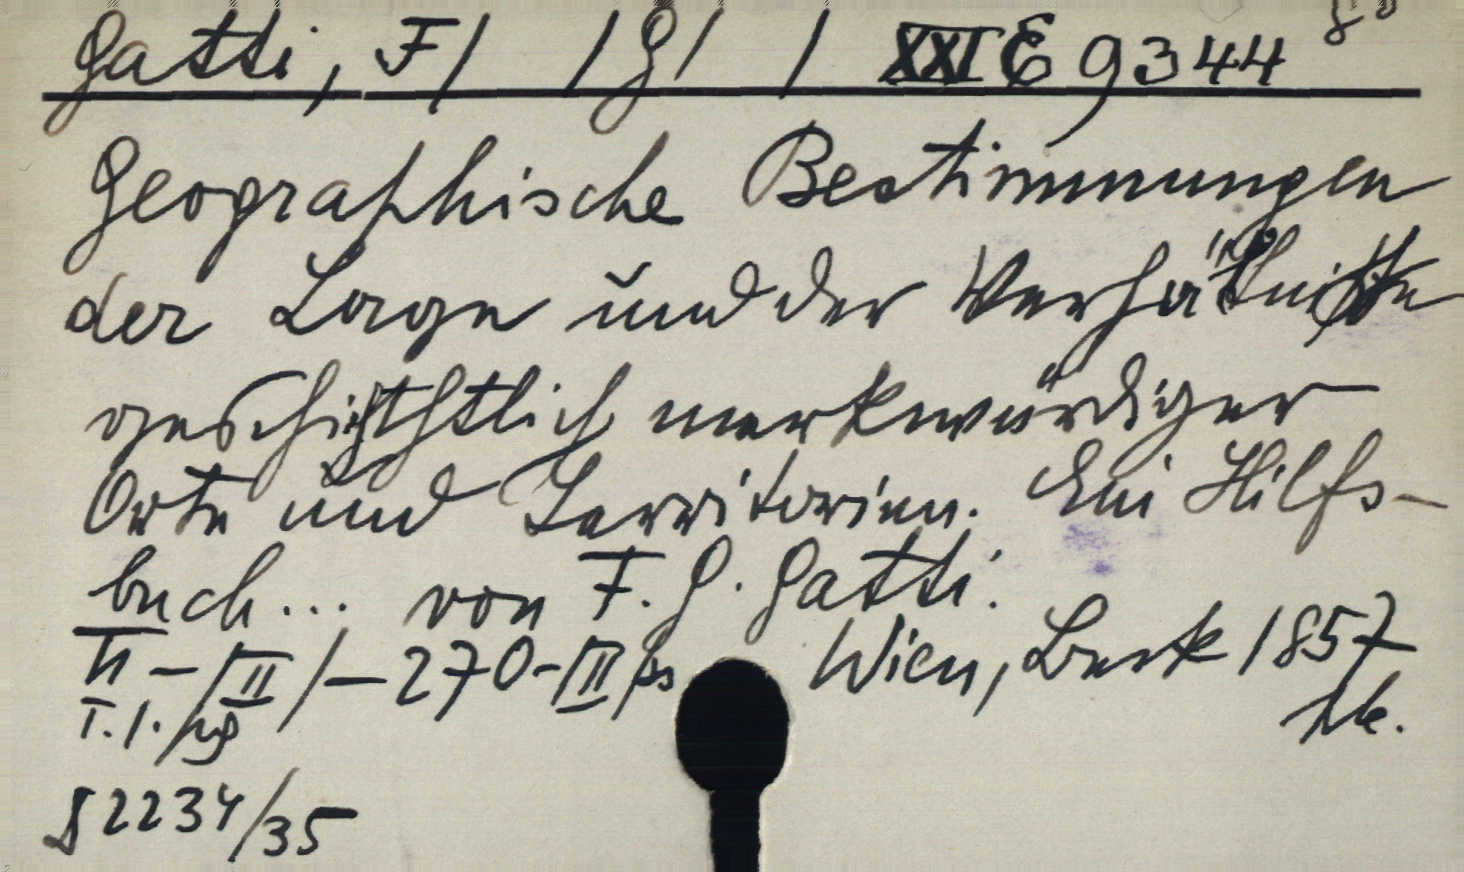 Gatti, F/ /G/ / XXI E 9344 8°
Geographische Bestimmungen
der Lage und der Verhältnisse
geschichtlich merkwürdiger
Orte und Territorien. Ein Hilfs-
buch... von F. G. Gatti.
II - /II/ - 270 - /II/ Wien, Beck 1857
T. 1.
§ 2234/35